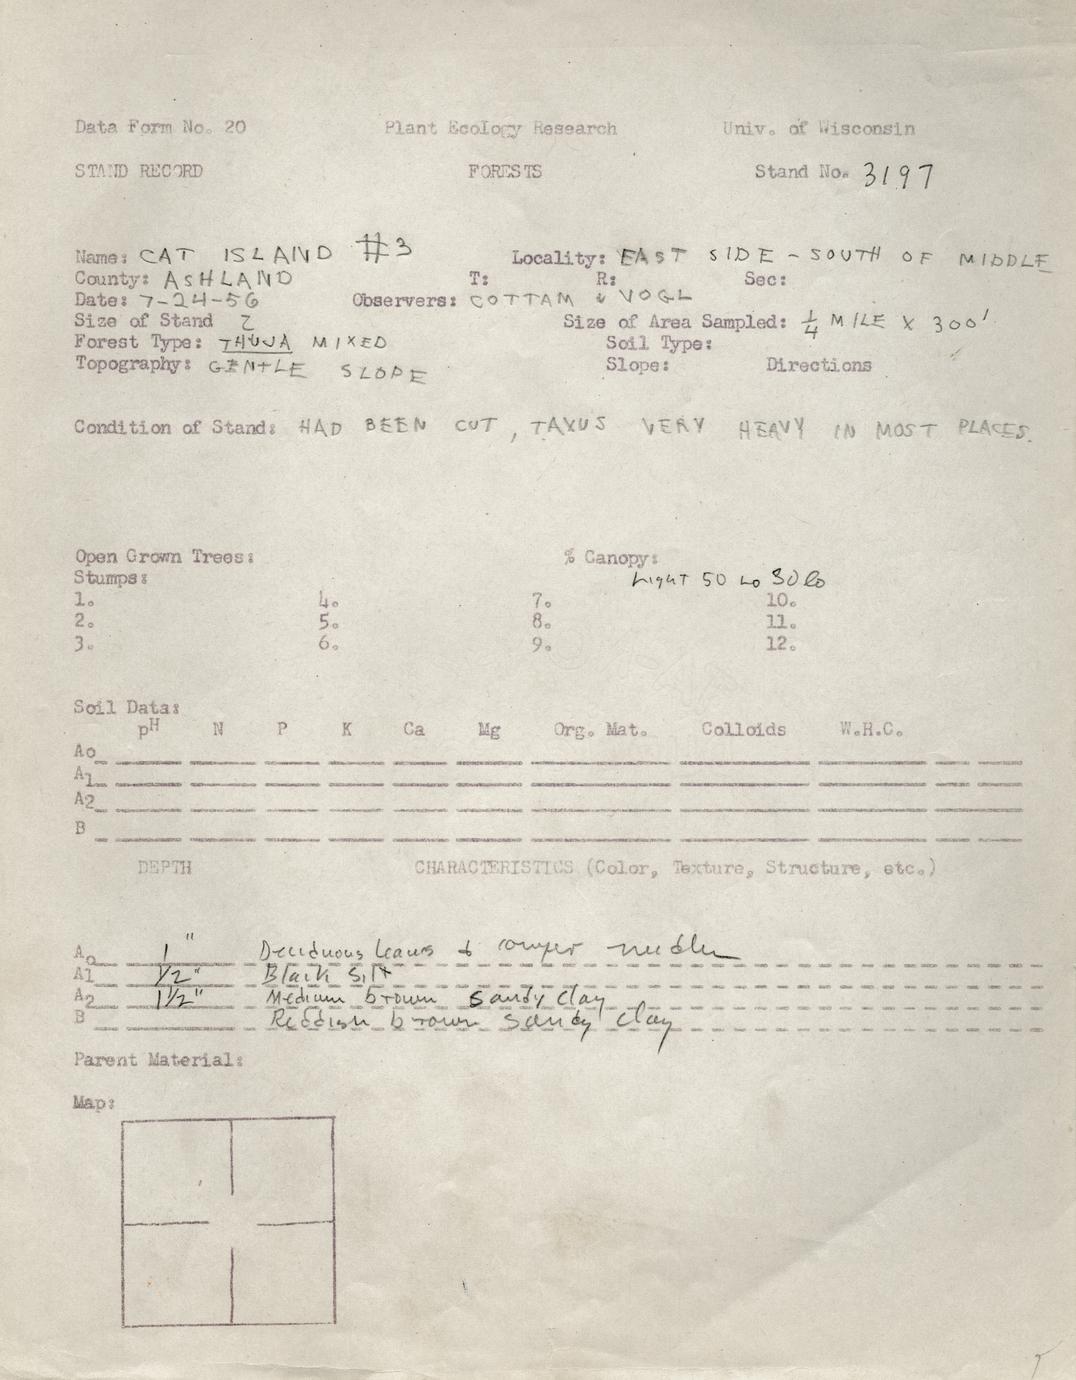 Data Form No. 20 Plant Ecology Research Univ. of Wisconsin
STAND RECORD FORESTS Stand No. 3197
Name: CAT ISLAND #3 Locality: EAST SIDE - SOUTH OF MIDDLE
County: ASHLAND T: R: Sec:
Date: 7-24-56 Observers: COTTAM & VOGL
Size of Stand Size of Area Sampled: 1/4 MILE X 300'
Forest Type: THUJA MIXED Soil Type:
Topography: GENTLE SLOPE Slope: Directions
Condition of Stand: HAD BEEN CUT, TAXUS VERY HEAVY IN MOST PLACES.
Open Grown Trees: % Canopy:
Stumps: Light 50 to
1. 4. 7. 10.
2. 5. 8. 11.
3. 6. 9. 12.
Soil Data:
pH N P K Ca Mg Org. Mat. Colloids W.R.C.
Ao
A1
A2
B
DEPTH CHARACTERISTICS (Color, Texture, Structure, etc.)
Ao 1" Deciduous leaves & conifer needles
A1 1/2" Black silt
A2 1 1/2" Medium brown sandy clay
B Reddish brown sandy clay
Parent Material:
Map: